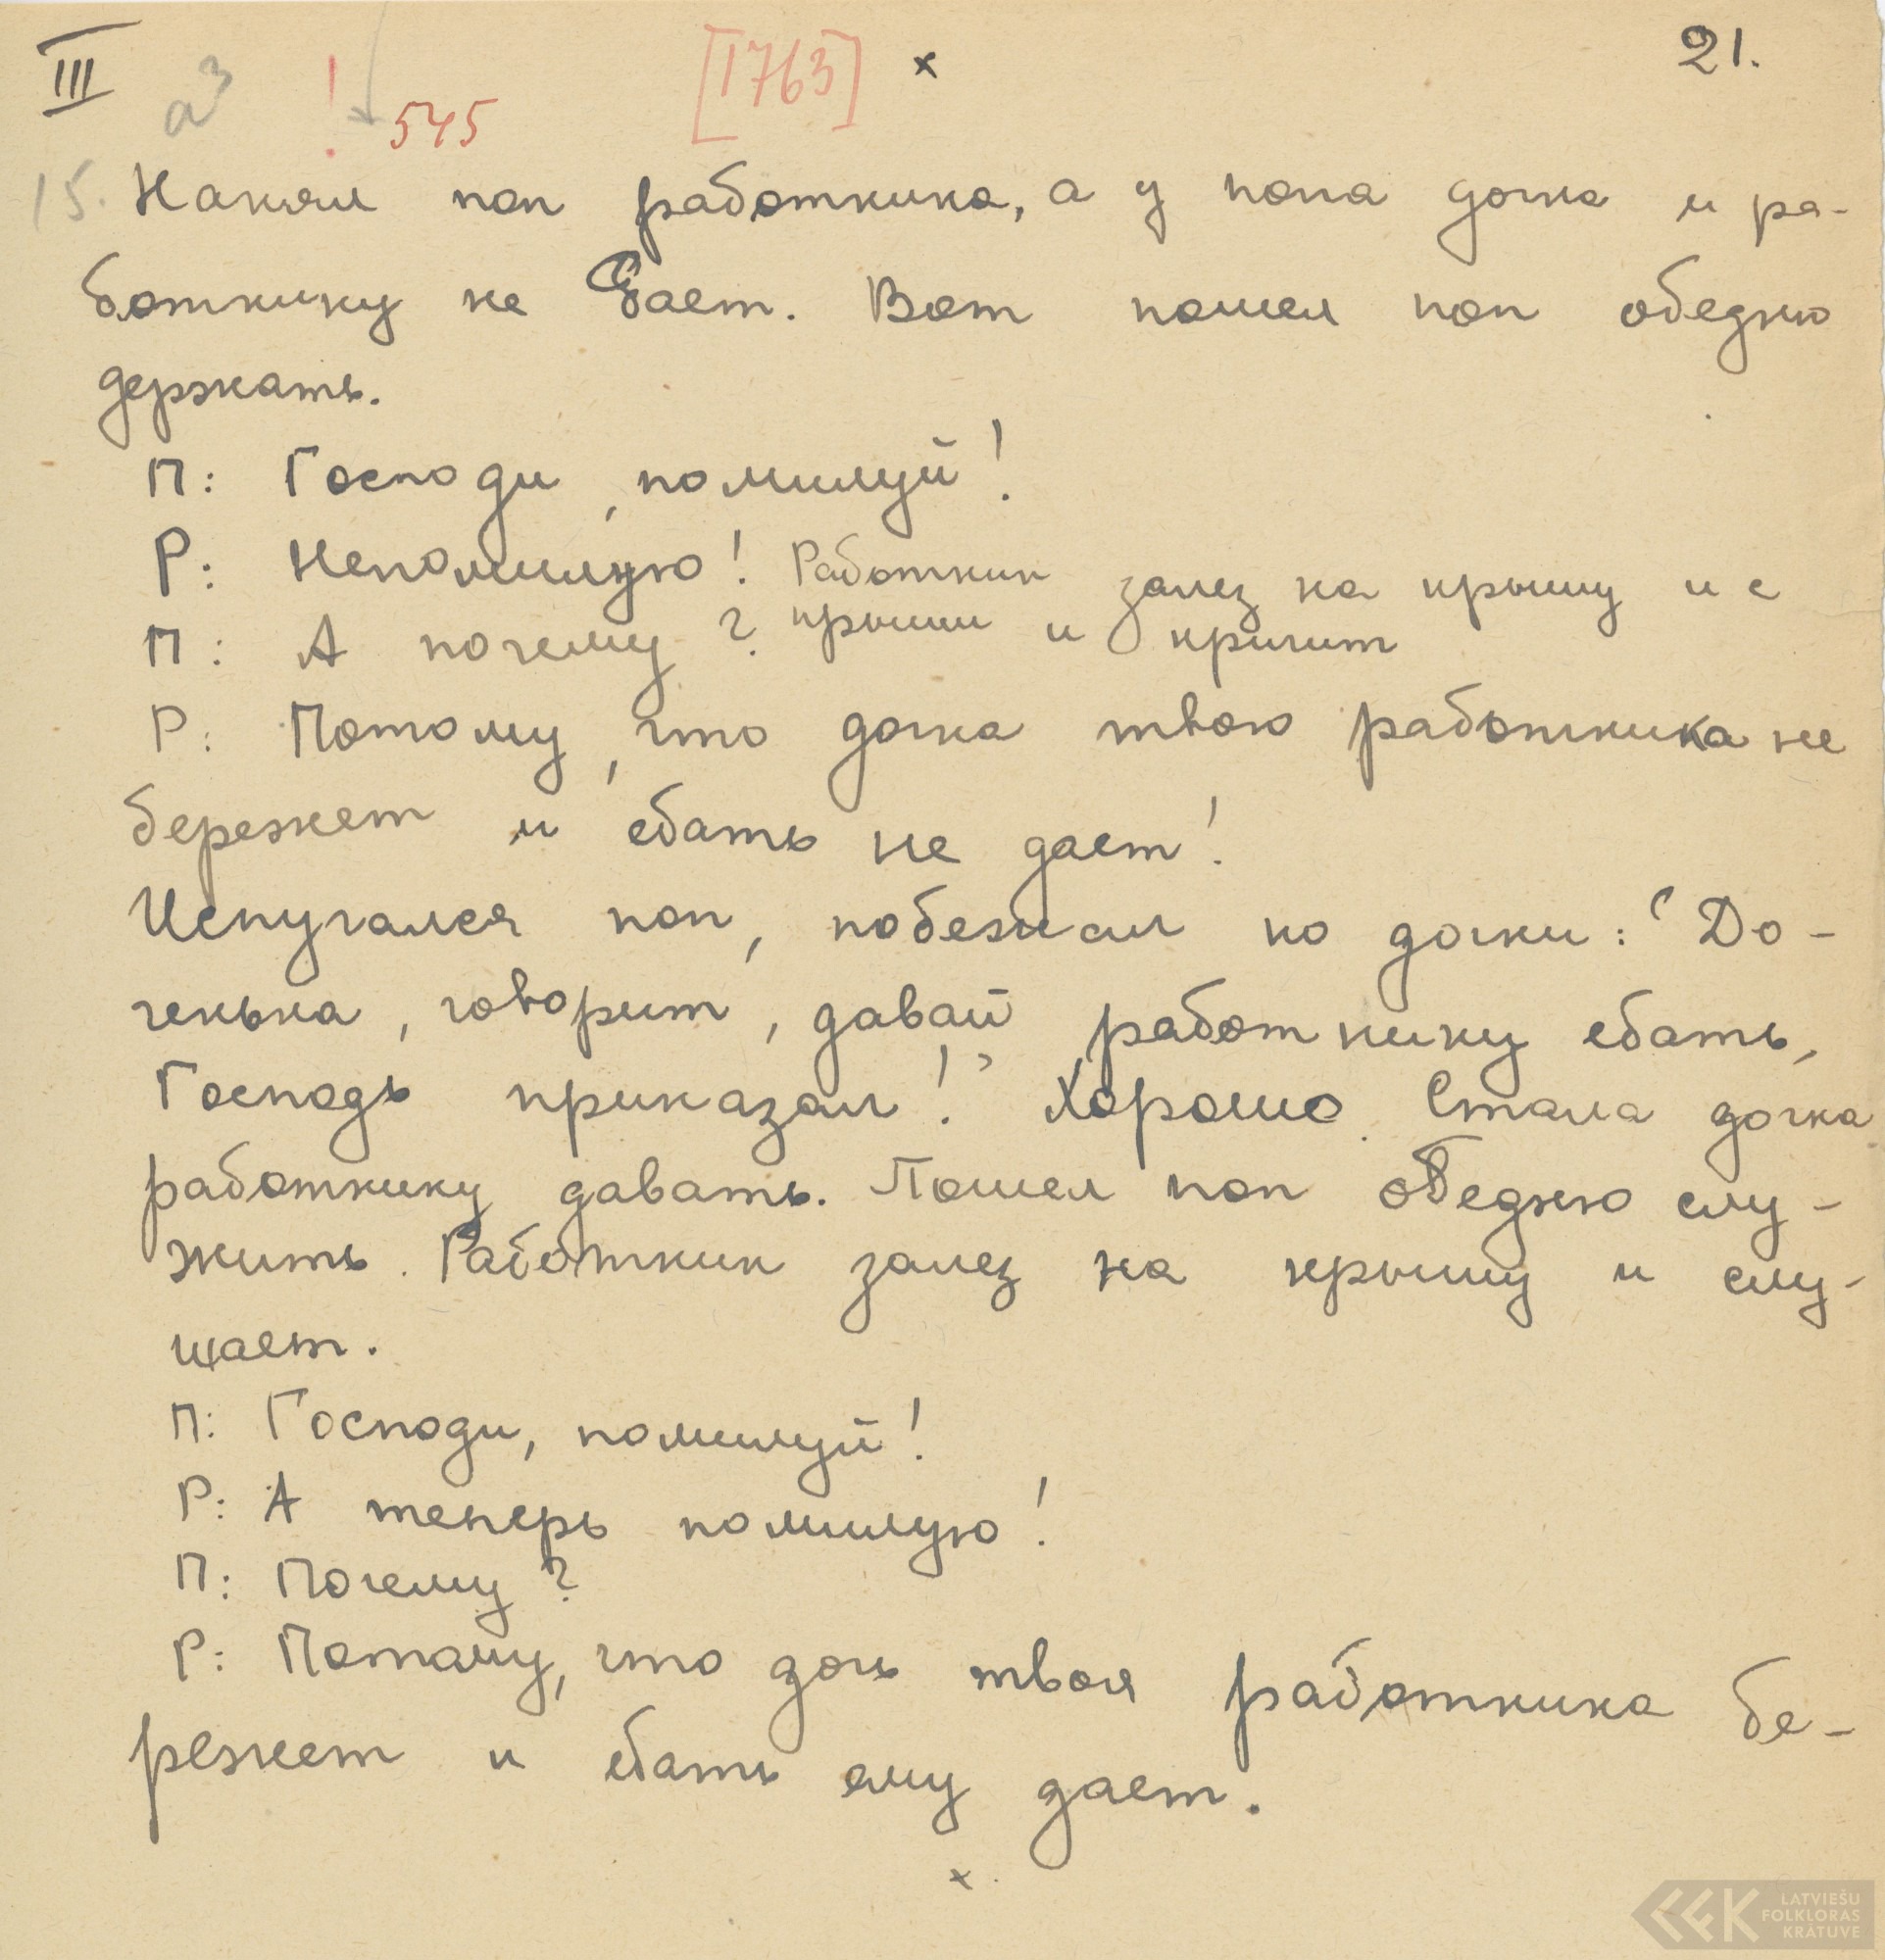 III а³ ! [1763] × 21.
545
15. Нанял поп работника, а у попа дочка и ра-
ботнику не дает. Вот пошел поп обедню
держать.
П: Господи, помилуй!
Р: Непомилую! Работник залез на крышу и с
П: А почему? крыши и кричит
Р: Потому, что дочка твою работника не
бережет и ебать не дает!
Испугался поп, побежал ко дочки: "До-
ченька, говорит, давай работнику ебать,
Господь приказал!" Хорошо. Стала дочка
работнику давать. Пошел поп обедню слу-
жить. Работник залез на крышу и слу-
шает.
П: Господи, помилуй!
Р: А теперь помилую!
П: Почему?
Р: Потому, что дочь твоя работника бе-
режет и ебать ему дает.
×.
LATVIEŠU
FOLKLORAS
KRĀTUVE